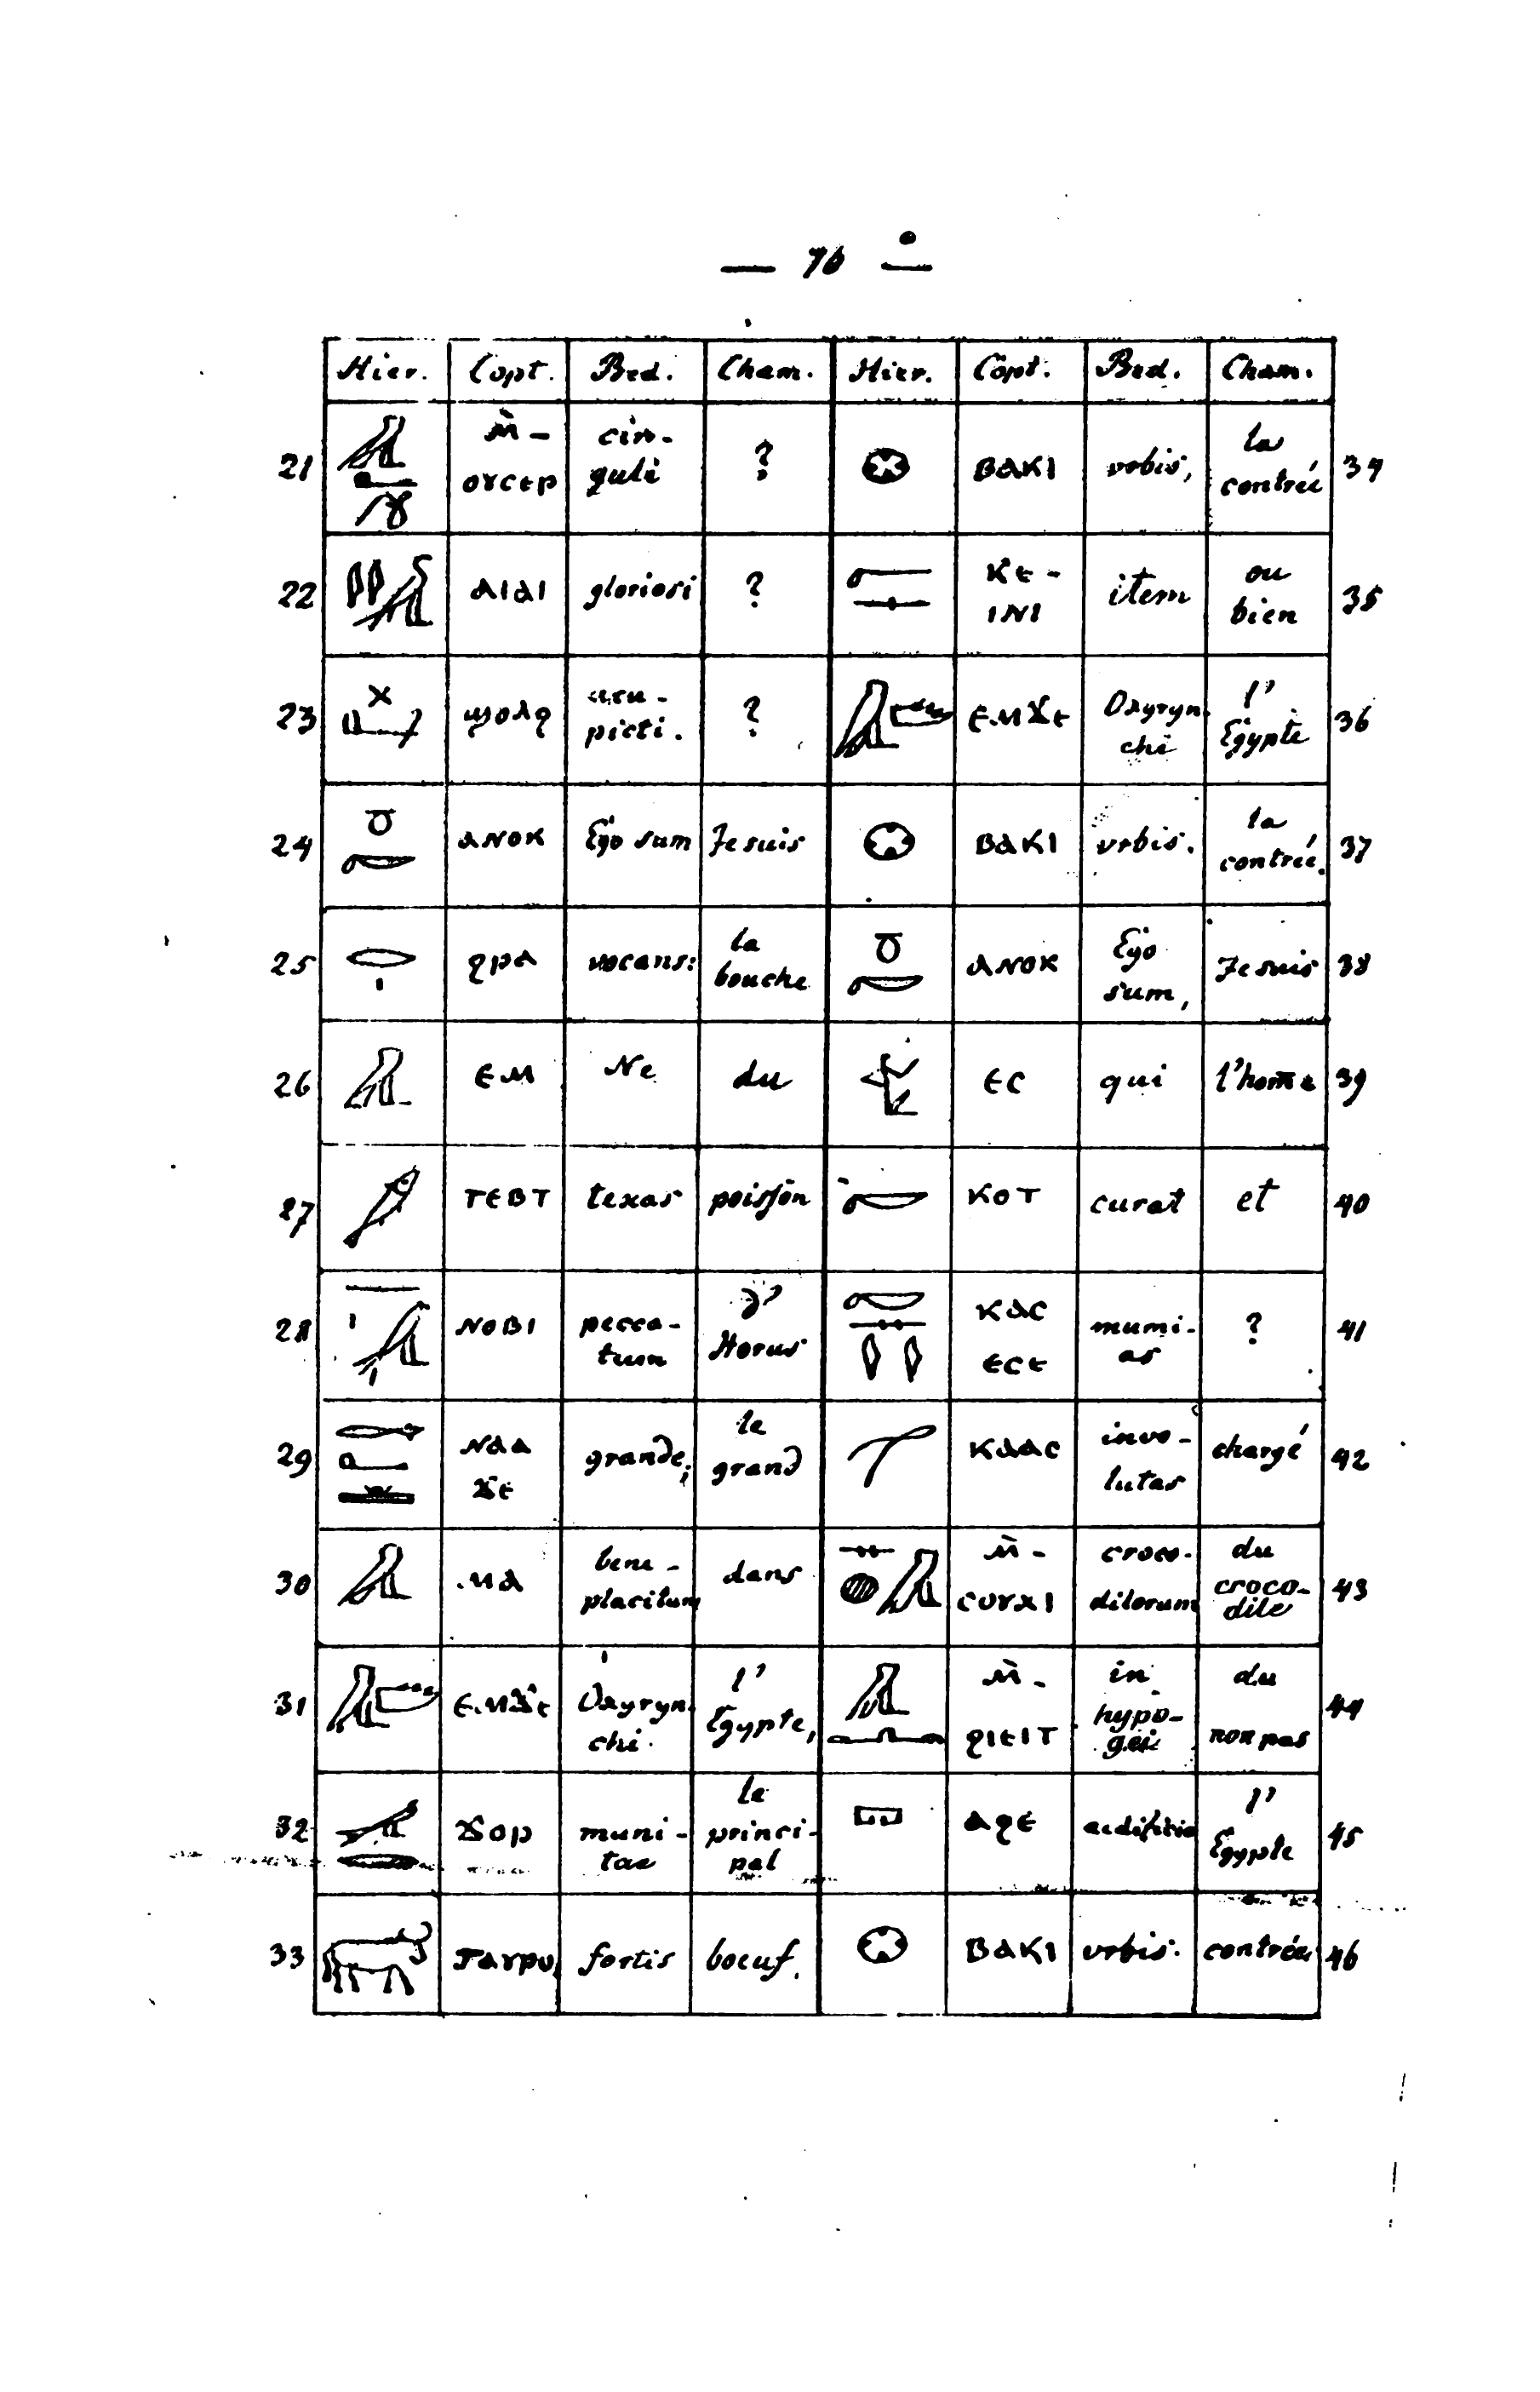 — 76 —
Hier. Copt. Bed. Cham. Hier. Copt. Bed. Cham.
21 ⲙ̀- ⲟⲩⲥⲉⲣ cin- guli ? ⲃⲁⲕⲓ urbis, la contrée 34
22 ⲁⲓⲁⲓ gloriosi ? ⲕⲉ- ⲓⲛⲓ item ou bien 35
23 ϣⲟⲗϩ acu- picti. ? ⲉⲙϫⲉ Oxyryn- chi l' Egypte 36
24 ⲁⲛⲟⲕ Ego sum Je suis ⲃⲁⲕⲓ urbis. la contrée. 37
25 ϩⲣⲁ vocans: la bouche ⲁⲛⲟⲕ Ego sum, Je suis 38
26 ⲉⲙ Ne du ⲉⲥ qui l'hom̄e 39
27 ⲧⲉⲃⲧ texas poisson ⲕⲟⲧ curat et 40
28 ⲛⲟⲃⲓ pecca- tum d' Horus ⲕⲁⲥ ⲉⲥⲉ mumi- as ? 41
29 ⲛⲁⲁ ϫⲉ grande; le grand ⲕⲁⲁⲥ invo- lutas chargé 42
30 ⲙⲁ bene- placitum dans ⲙ̀- ⲥⲟⲩⲭⲓ croco- dilorum du croco- dile 43
31 ⲉⲙϫⲉ Oxyryn- chi. l' Egypte, ⲙ̀- ϩⲓⲉⲓⲧ in hypo- gei du non pas 44
32 ϫⲟⲣ muni- tae le princi- pal ⲁϩⲉ aedificio l' Egypte 45
33 ⲧⲁⲩⲣⲟ fortis boeuf. ⲃⲁⲕⲓ urbis. contrée 46